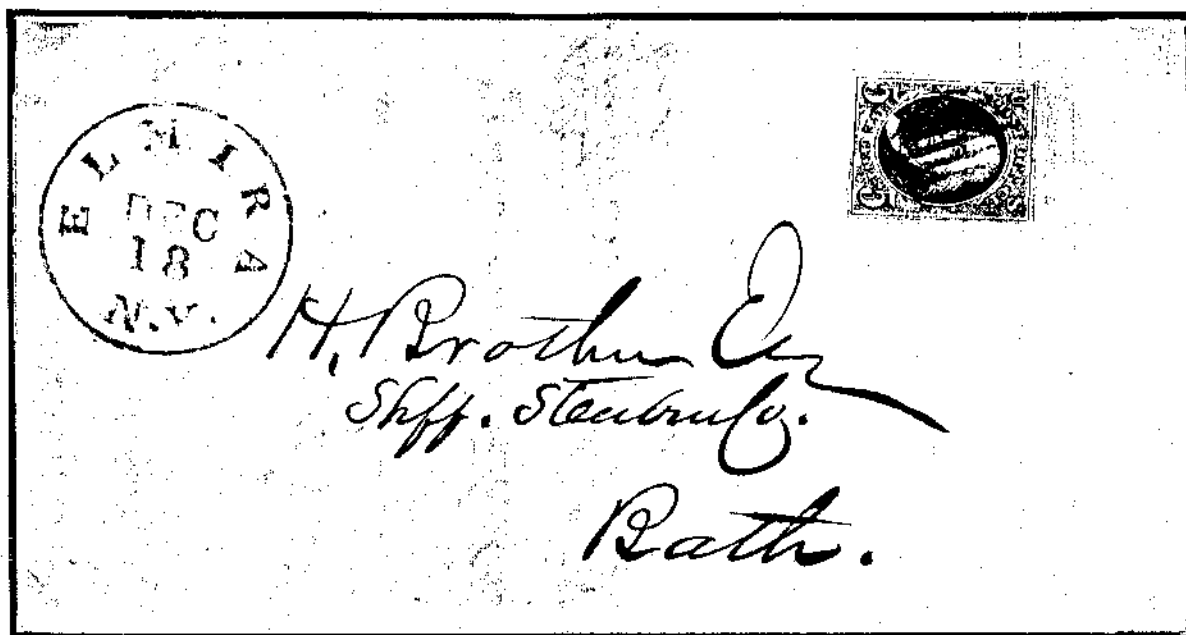 ELMIRA
DEC
18
N.Y.
H. Brother Esq
Shff. Steuben Co.
Bath.